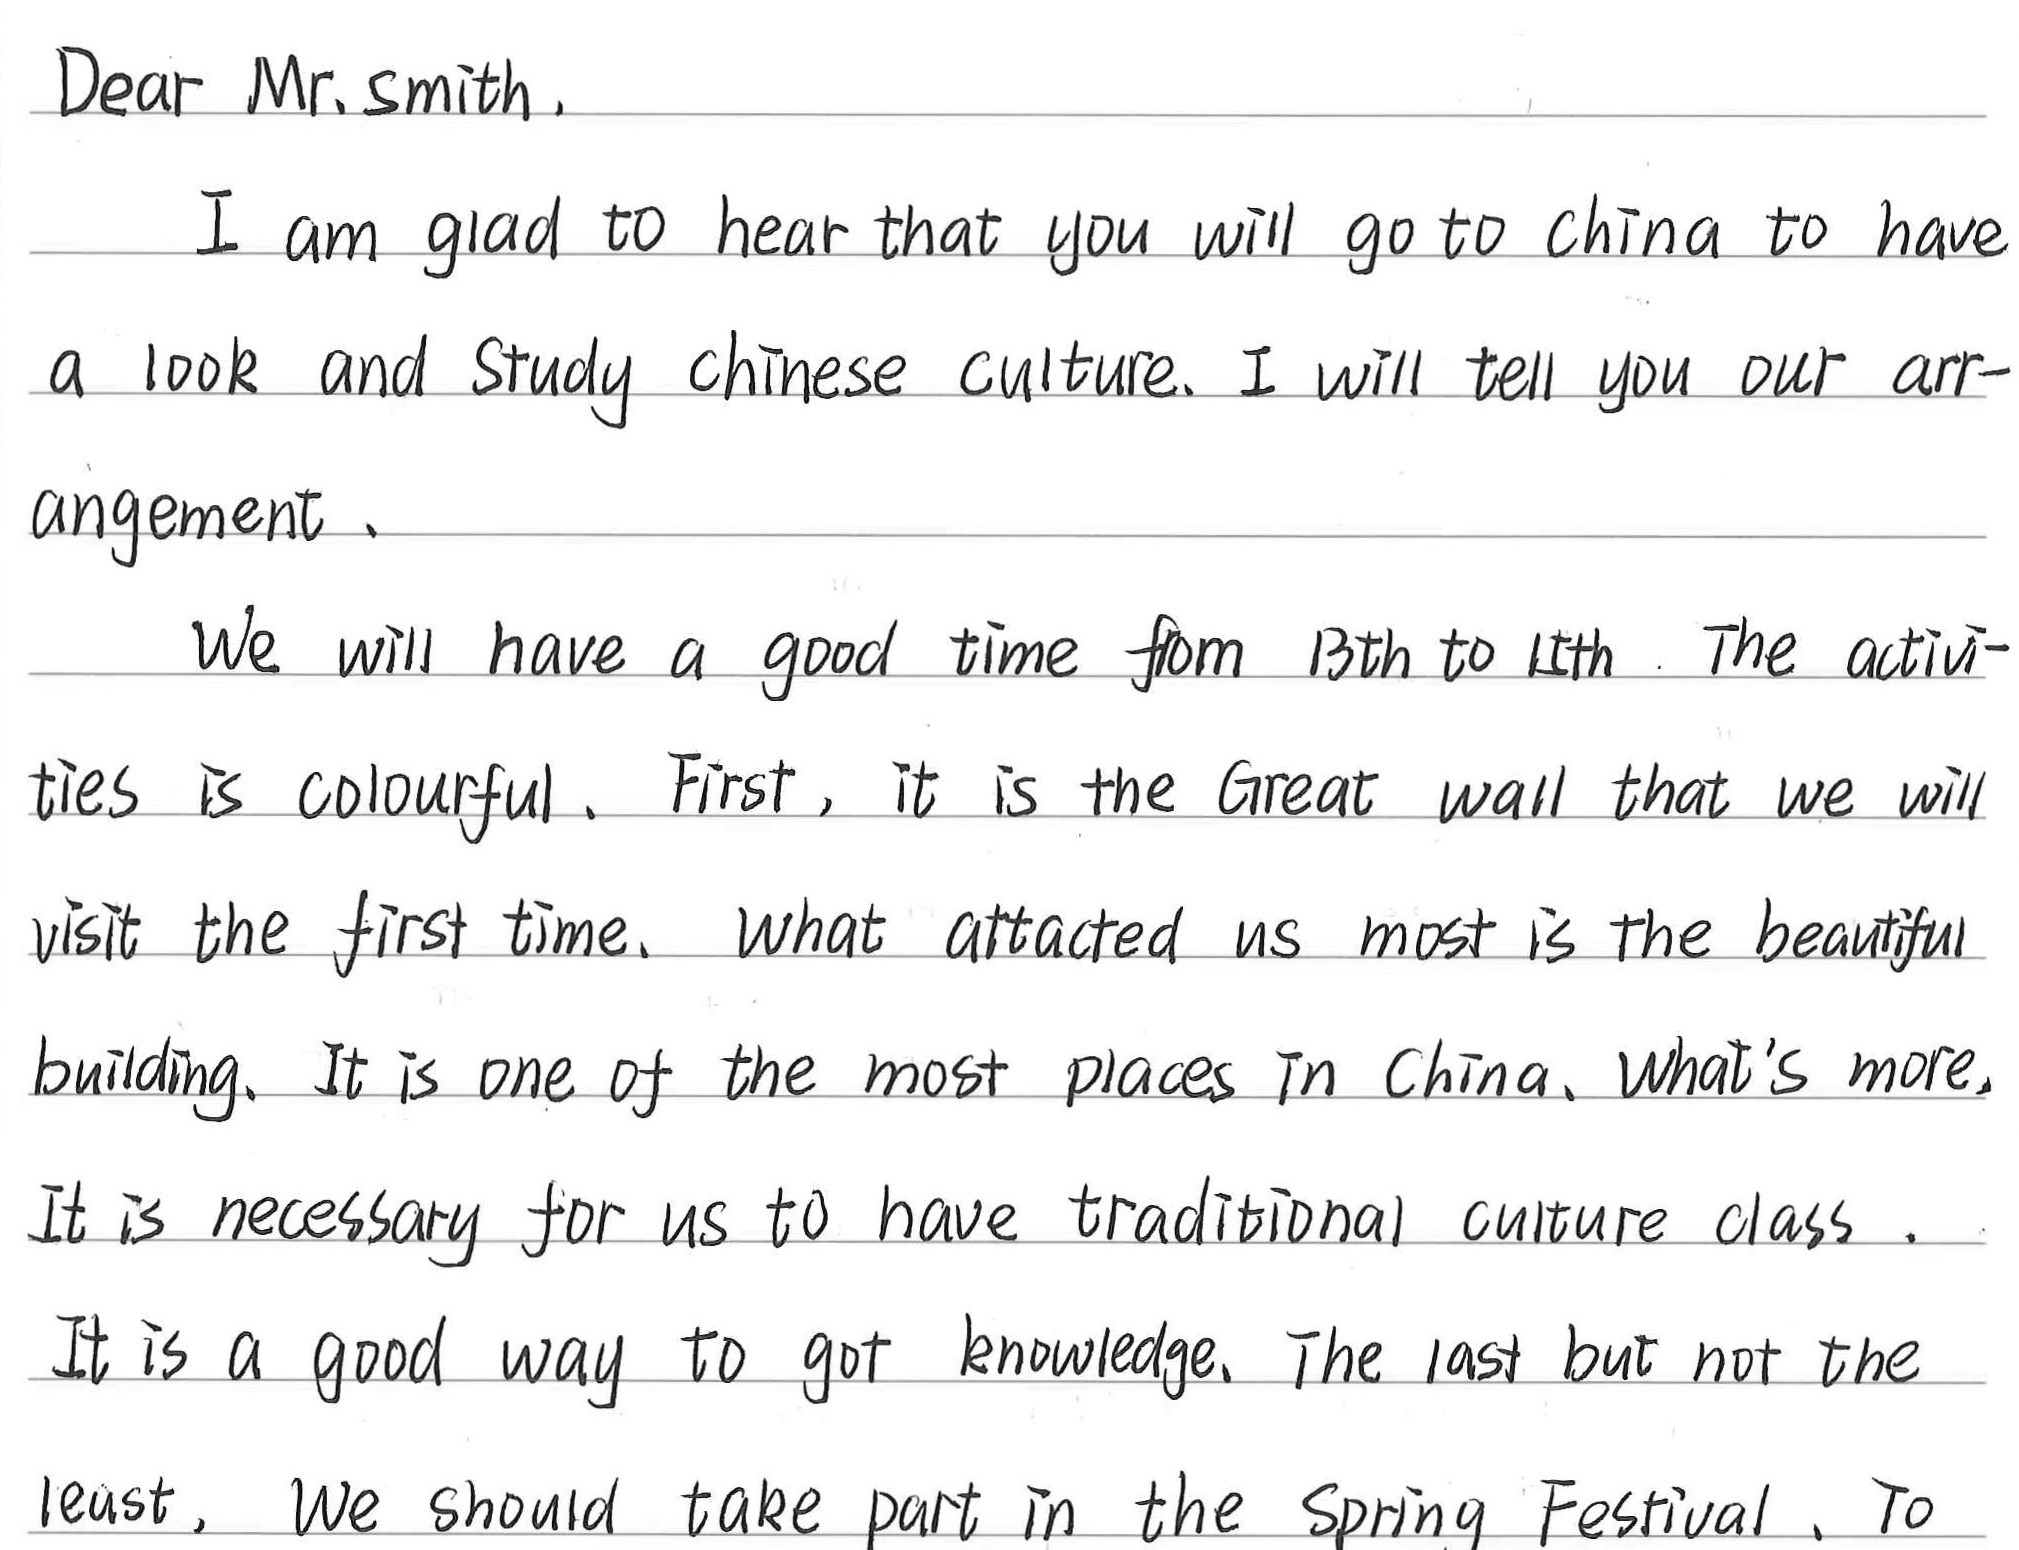 Dear Mr. smith,
I am glad to hear that you will go to china to have
a look and study chinese culture. I will tell you our arr-
angement.
We will have a good time from 13th to 15th. The activi-
ties is colourful. First, it is the Great wall that we will
visit the first time. What attacted us most is the beautiful
building. It is one of the most places in China. What's more,
It is necessary for us to have traditional culture class.
It is a good way to got knowledge. The last but not the
least, We should take part in the Spring Festival. To